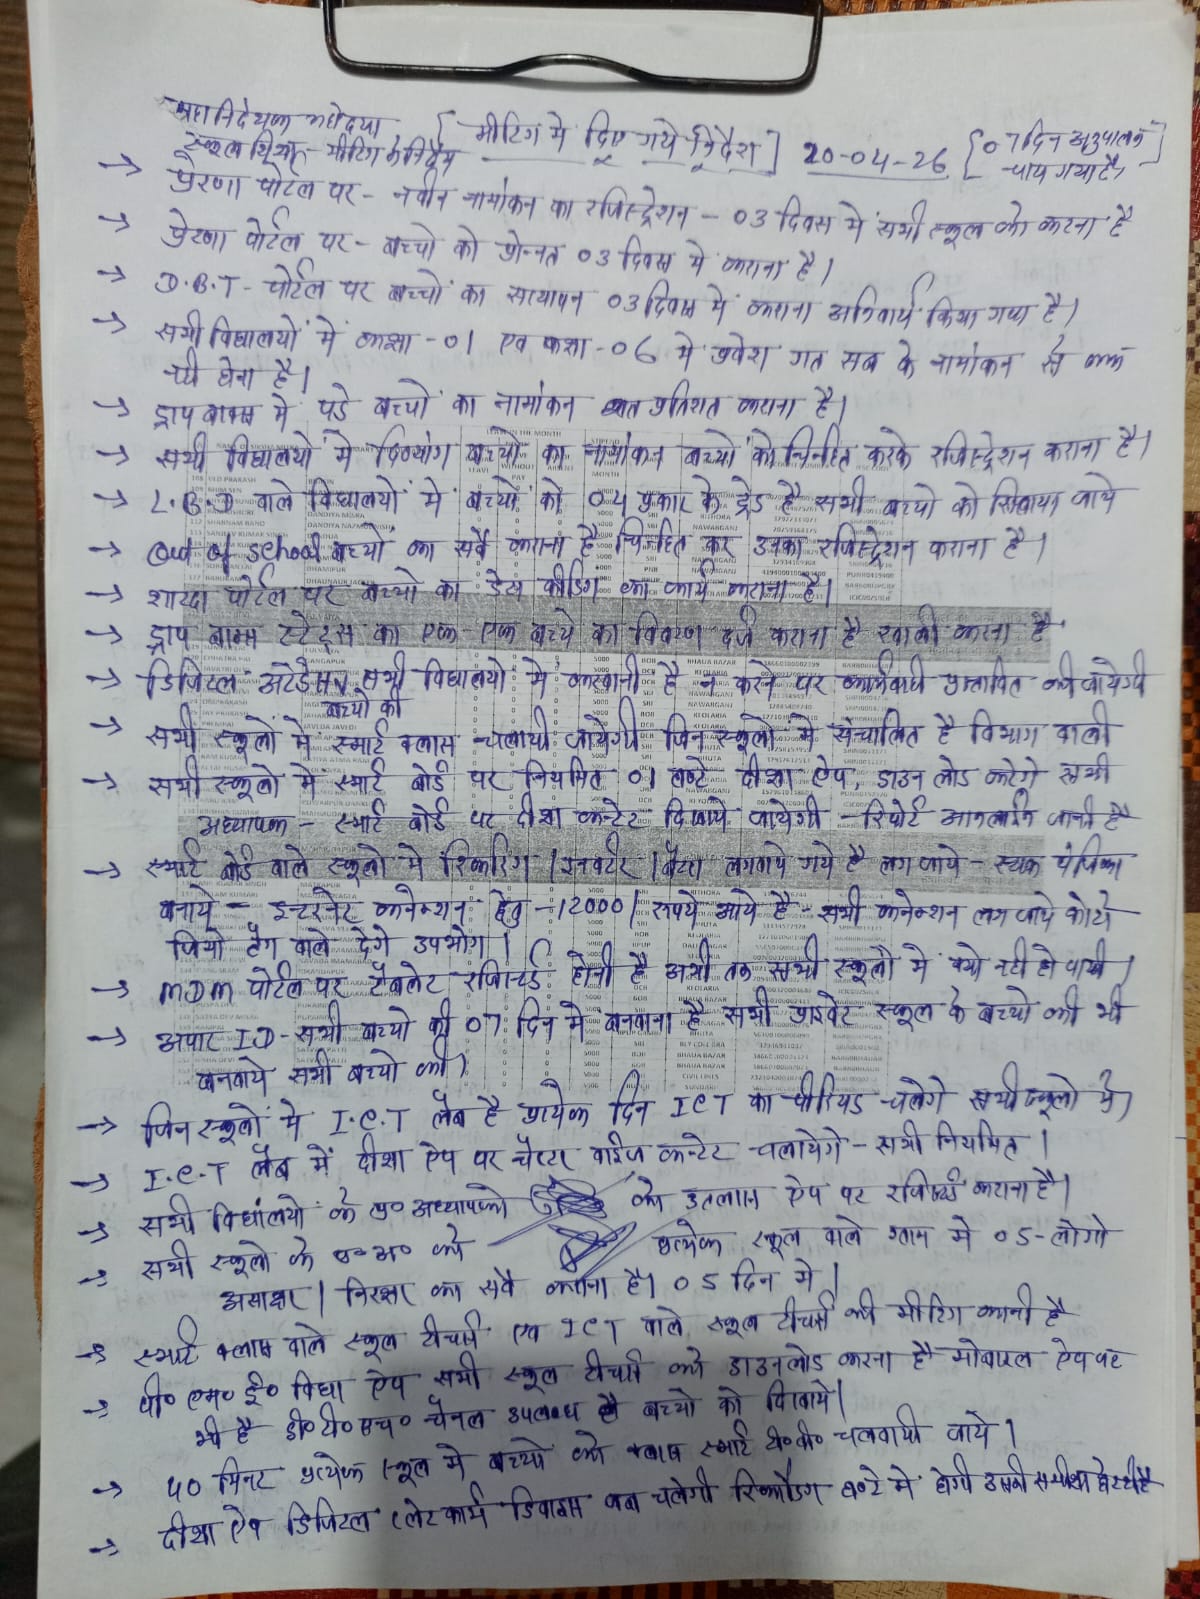 महानिदेशक महोदया
स्कूल शिक्षा - मीटिंग के निर्देश [मीटिंग मे दिए गये निर्देश] 20-04-26 [07 दिन अनुपालन
→ प्रेरणा पोर्टल पर - नवीन नामांकन का रजिस्ट्रेशन - 03 दिवस मे सभी स्कूल को करना है
→ प्रेरणा पोर्टल पर - बच्चो को प्रोन्नत 03 दिवस मे कराना है।
→ D.B.T - पोर्टल पर बच्चों का सत्यापन 03 दिवस में कराना अनिवार्य किया गया है।
→ सभी विद्यालयों में कक्षा - 01 एव कक्षा - 06 मे प्रवेश गत सत्र के नामांकन से कम
नही होना है।
→ ड्राप बाक्स मे पडे बच्चों का नामांकन शत प्रतिशत कराना है।
→ सभी विद्यालयों मे दिव्यांग बच्चों का नामांकन बच्चों को चिन्हित करके रजिस्ट्रेशन कराना है।
→ L.B.D वाले विद्यालयों मे बच्चों को 04 प्रकार के ट्रेड है सभी बच्चो को सिखाया जाये
→ Out of school बच्चों का सर्वे कराना है चिन्हित कर उनका रजिस्ट्रेशन कराना है।
→ शारदा पोर्टल पर बच्चो का डेटा फीडिंग का कार्य कराना है।
→ ड्राप बाक्स स्टेट्स का एक-एक बच्चे का विवरण दर्ज कराना है खाली करना है
→ डिजिटल अटेंडेन्स सभी विद्यालयो मे करवानी है न करने पर कार्यवाही प्रस्तावित की जायेगी
बच्चो की
→ सभी स्कूलों में स्मार्ट क्लास चलायी जायेगी जिन स्कूलो मे संचालित है विभाग वाली
→ सभी स्कूलो मे स्मार्ट बोर्ड पर नियमित 01 घण्टे दीक्षा ऐप, डाउनलोड करेगे सभी
अध्यापक - स्मार्ट बोर्ड पर दीक्षा कन्टेट दिखाये जायेगी - रिपोर्ट आनलाईन जानी है
→ स्मार्ट बोर्ड वाले स्कूलो मे / इनवर्टर / बैटरी लगवाये गये है लग जाये - स्टाक पंजिका
बनाये - इन्टरनेट कनेक्शन हेतु - 12000/ रूपये आये है - सभी कनेक्शन लग जाये फोटो
जियो टैग वाले देगे उपभोग।
→ MDM पोर्टल पर टैबलेट रजिस्टर्ड होनी है अभी तक सभी स्कूलो मे क्यो नही हो पायी।
→ अपार ID - सभी बच्चो की 07 दिन मे बनवाना है सभी प्राइवेट स्कूल के बच्चो की भी
बनवाये सभी बच्चो की।
→ जिन स्कूलों मे I.C.T लैब है प्रत्येक दिन ICT का पीरियड चलेगे सभी स्कूलो मे,
→ I.C.T लैब में दीक्षा ऐप पर चैप्टर वाईज कन्टेट चलायेगे - सभी नियमित।
→ सभी विद्यालयो के प्र० अध्यापको को उल्लास ऐप पर रजिस्टर्ड कराना है।
→ सभी स्कूलो के प्र० अ० को प्रत्येक स्कूल वाले ग्राम मे 05-लोगो
असाक्षर / निरक्षर का सर्वे कराना है। 05 दिन मे।
→ स्मार्ट क्लास वाले स्कूल टीचर्स एव ICT वाले स्कूल टीचर्स की मीटिंग करानी है
→ पी० एम० ई० विद्या ऐप सभी स्कूल टीचर्स को डाउनलोड करना है मोबाइल ऐप पर
भी है डी० टी० एच० चैनल उपलब्ध है बच्चो को दिखाये।
→ 40 मिनट प्रत्येक स्कूल मे बच्चो को क्लास स्मार्ट टी० वी० चलवायी जाये।
→ दीक्षा ऐप डिजिटल प्लेटफार्म डिवाइस जब चलेगी रिकार्डिंग घण्टे मे होगी उसकी समीक्षा हो रही है